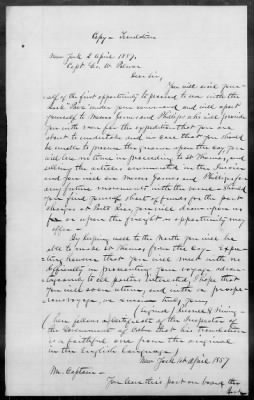 Copy = Translation
New York 2 April 1857,
Capt Geo. W. Brown
Dear Sir,
You will avail your-
self of the first opportunity to proceed to sea with the
bark " under your command and will report
yourself to Messrs James and Phillips who will provide
you with men for the expedition that you are
about to undertake, and in case that you should
be unable to procure the for the voyage you
will lose no time in proceeding to St Thomas, and
selling the articles enumerated in the invoice
and join Messrs James and Phillips for
any future movement with the same. Should
you find yourself short of funds for the port
charges at this port, you will draw upon us
for or upon the freight as opportunity may
offer.
By keeping well to the North you will be
able to make St Thomas from the Bay. Expe-
rience having shown that you will meet with no
difficulty in prosecuting your voyage advan-
tageously to all parties interested, I hope that
you will set in strong, and with a prospe-
rous voyage, we remain truly yours,
(Signed)
(here follows a certificate of the Inspector of
the Government of Cuba that his translation
is a faithful one from the original
in the English Language)
New York 1st April 1857
Mr. Captain =
You have this port on board the